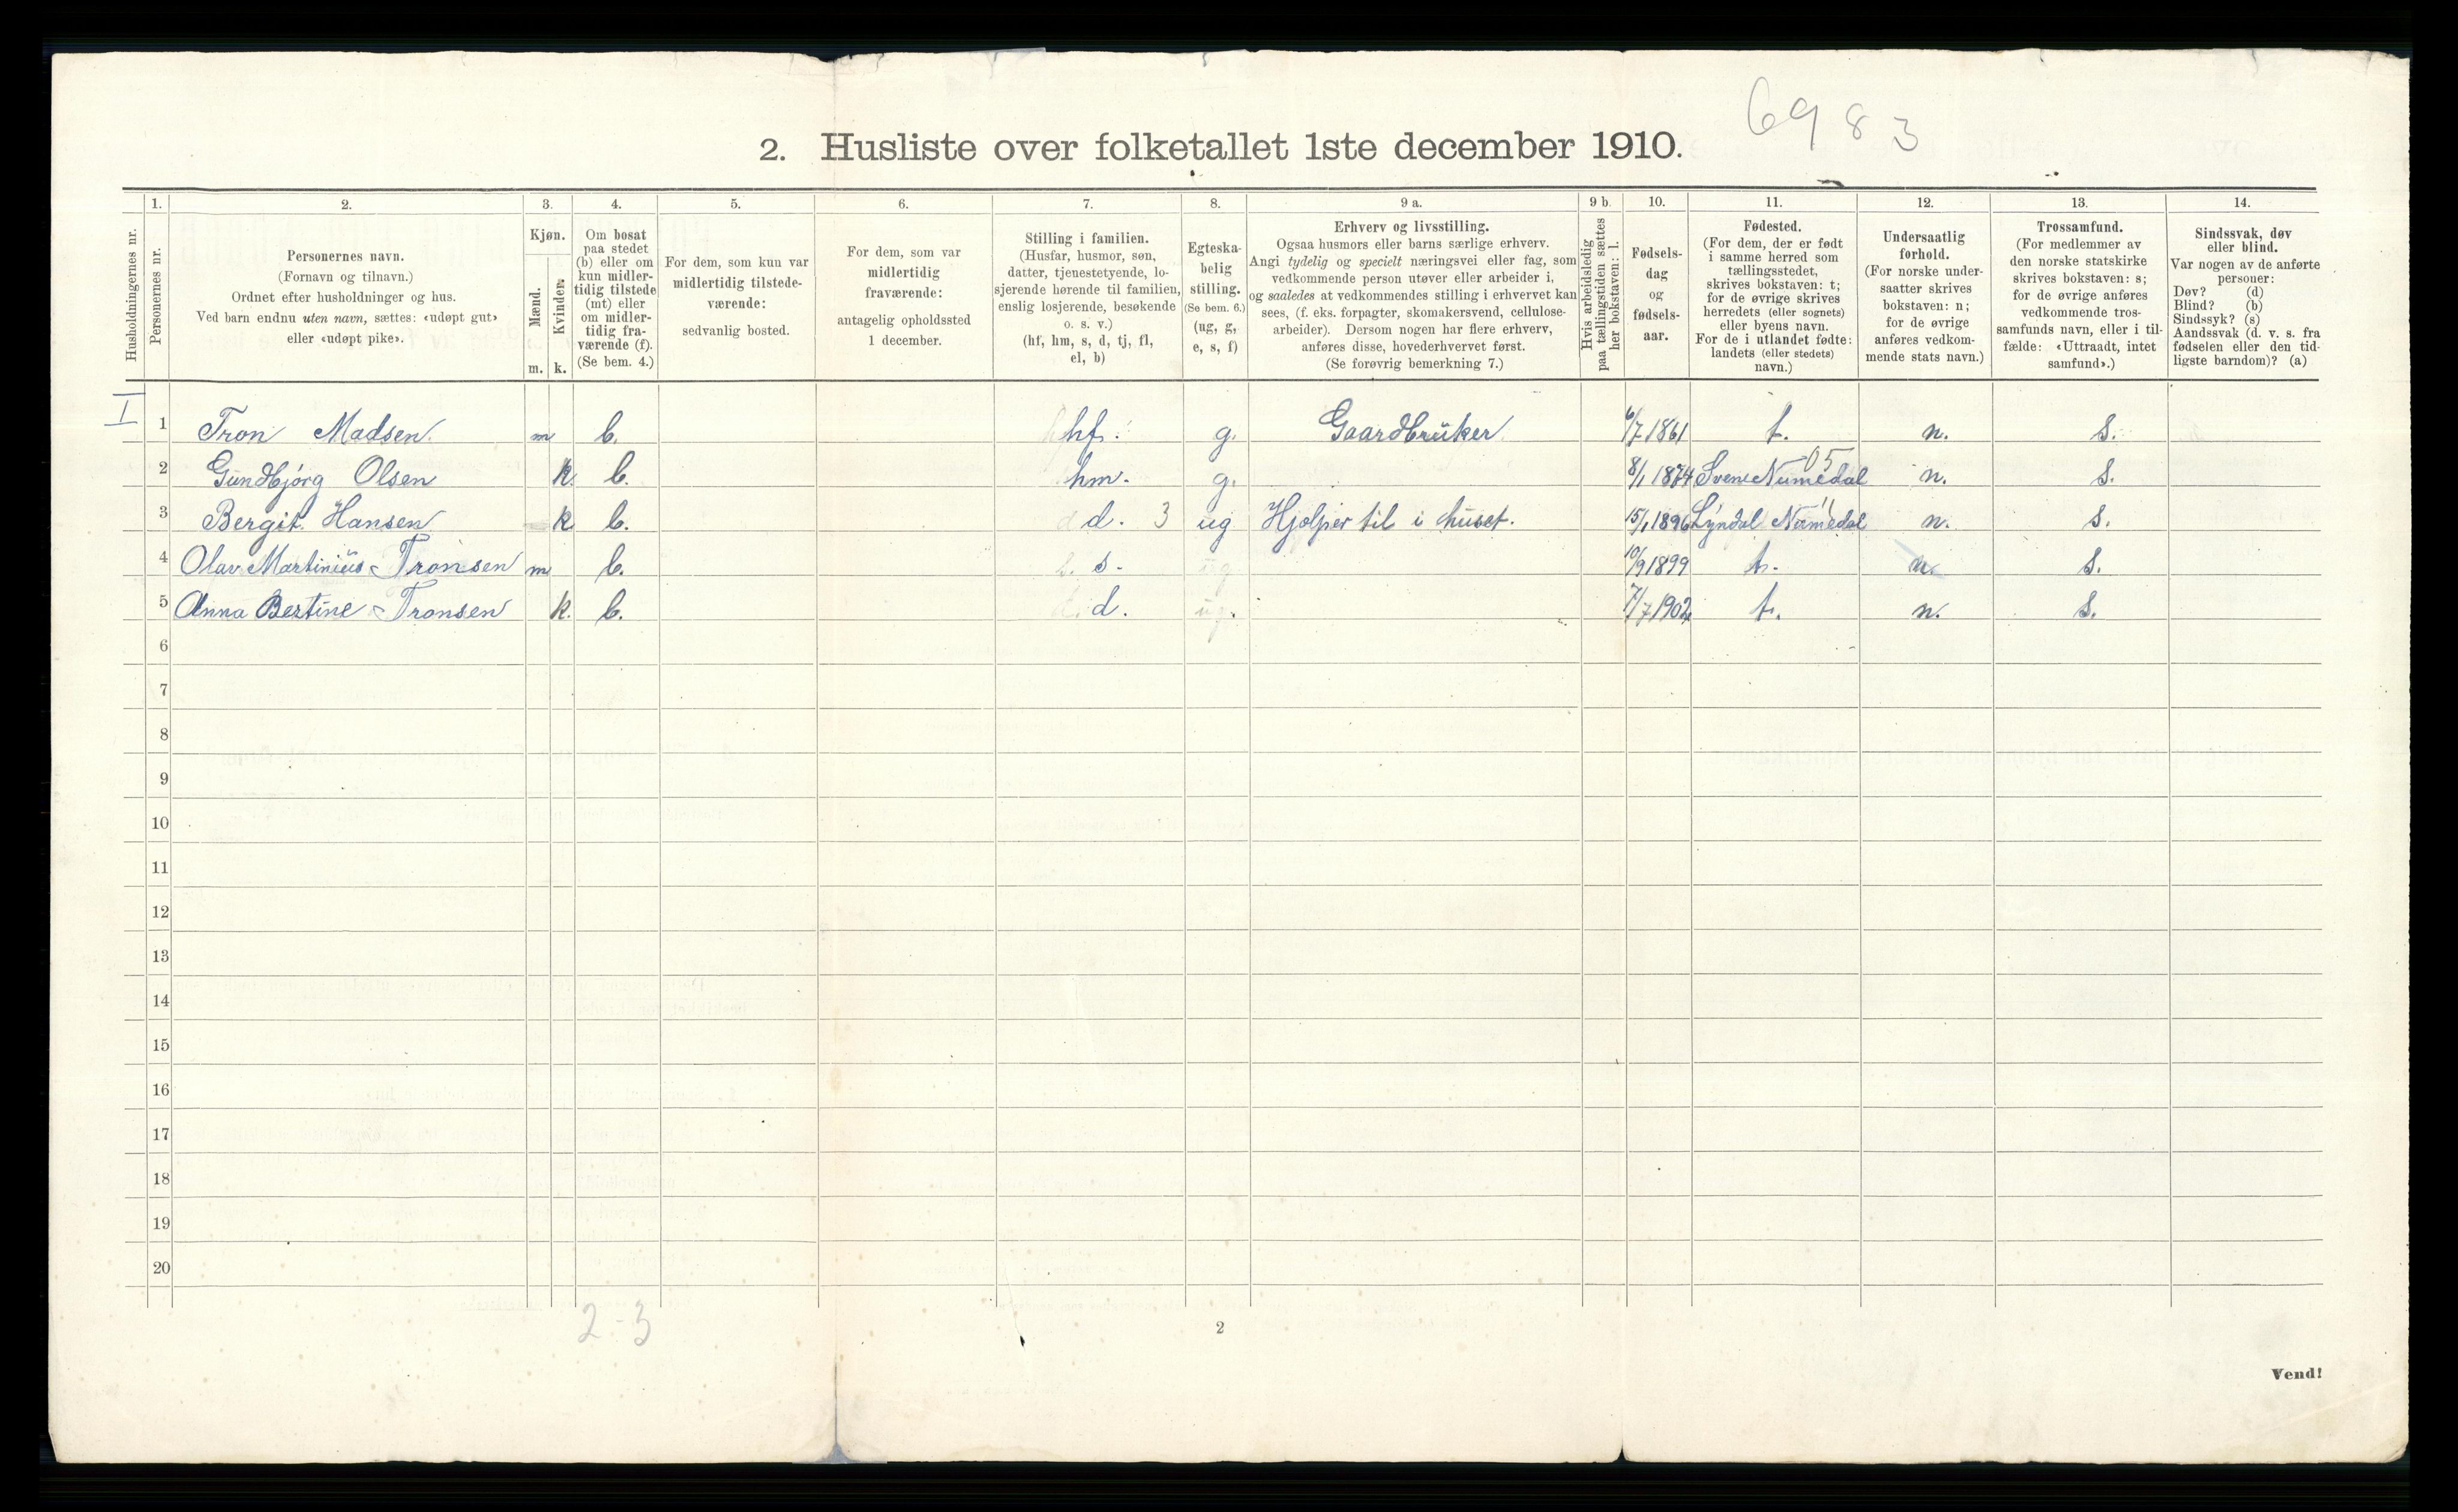 6983
2. Husliste over folketallet 1ste december 1910.
Husholdningernes nr.
1. Personernes nr.
2. Personernes navn. (Fornavn og tilnavn.) Ordnet efter husholdninger og hus. Ved barn endnu uten navn, sættes: «udøpt gut» eller «udøpt pike».
3. Kjøn. Mænd. m. Kvinder. k.
4. Om bosat paa stedet (b) eller om kun midlertidig tilstede (mt) eller om midlertidig fraværende (f). (Se bem. 4.)
5. For dem, som kun var midlertidig tilstedeværende: sedvanlig bosted.
6. For dem, som var midlertidig fraværende: antagelig opholdssted 1 december.
7. Stilling i familien. (Husfar, husmor, søn, datter, tjenestetyende, losjerende hørende til familien, enslig losjerende, besøkende o. s. v.) (hf, hm, s, d, tj, fl, el, b)
8. Egteskabelig stilling. (Se bem. 6.) (ug, g, e, s, f)
9 a. Erhverv og livsstilling. Ogsaa husmors eller barns særlige erhverv. Angi tydelig og specielt næringsvei eller fag, som vedkommende person utøver eller arbeider i, og saaledes at vedkommendes stilling i erhvervet kan sees, (f. eks. forpagter, skomakersvend, cellulosearbeider). Dersom nogen har flere erhverv, anføres disse, hovederhvervet først. (Se forøvrig bemerkning 7.)
9 b. Hvis arbeidsledig paa tællingstiden sættes her bokstaven: l.
10. Fødselsdag og fødselsaar.
11. Fødested. (For dem, der er født i samme herred som tællingsstedet, skrives bokstaven: t; for de øvrige skrives herredets (eller sognets) eller byens navn. For de i utlandet fødte: landets (eller stedets) navn.)
12. Undersaatlig forhold. (For norske undersaatter skrives bokstaven: n; for de øvrige anføres vedkommende stats navn.)
13. Trossamfund. (For medlemmer av den norske statskirke skrives bokstaven: s; for de øvrige anføres vedkommende trossamfunds navn, eller i tilfælde: «Uttraadt, intet samfund».)
14. Sindssvak, døv eller blind. Var nogen av de anførte personer: Døv? (d) Blind? (b) Sindssyk? (s) Aandssvak (d. v. s. fra fødselen eller den tidligste barndom)? (a)
I 1 Tron Madsen. m b. hf. g. Gaardbrüker 6/7 1861 t. n. s.
05
2 Gundbjörg Olsen k. b. hm. g. 8/1 1874 Svene Numedal n. s.
3 Bergit Hansen k b. d. 3 ug Hjælper til i huset. 15/1 1896 Lyndal Numedal n. s.
4 Olav Martinius Tronsen m b. s. ug 10/9 1899 t. n. s.
5 Anna Bertine Tronsen k. b. d. ug. 7/7 1902 t. n. s.
6
7
8
9
10
11
12
13
14
15
16
17
18
19
20
2-3
2
Vend!